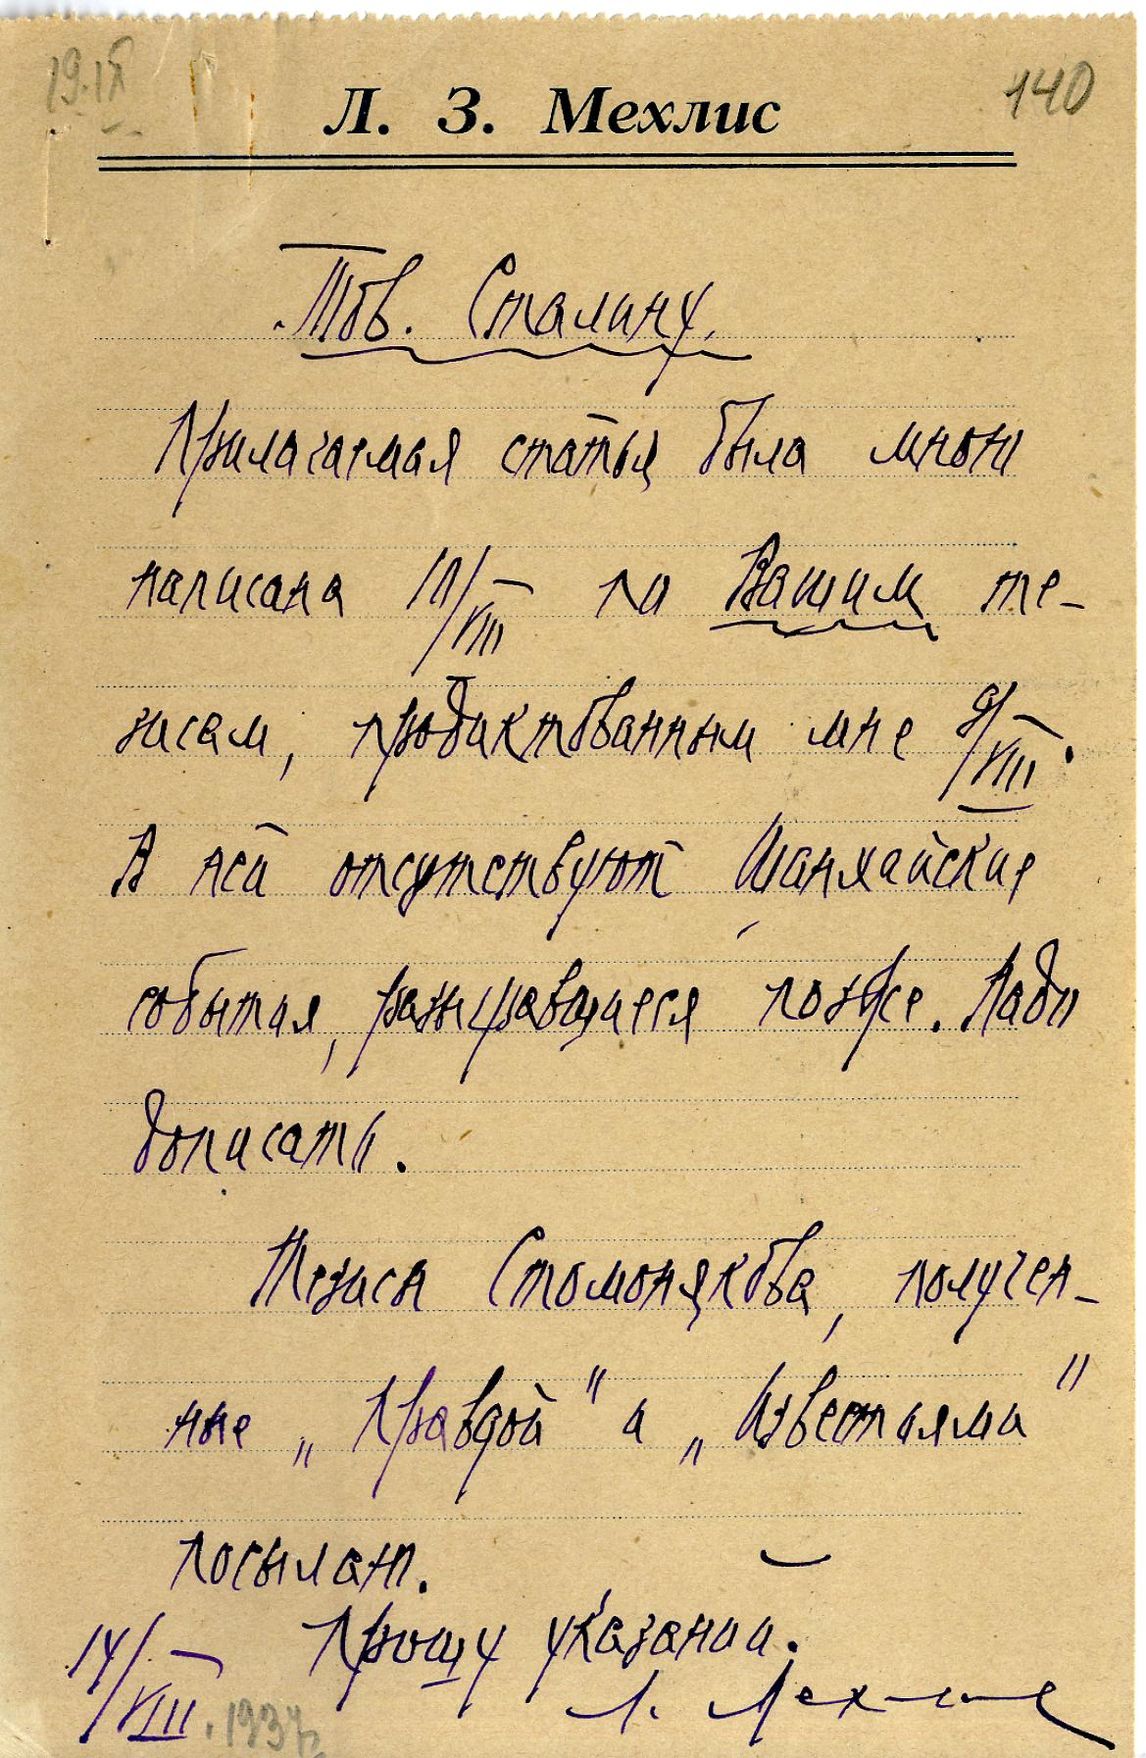 19.IX
140
Л. З. Мехлис
Тов. Сталину.
Прилагаемая статья была мною
написана 10/VIII по Вашим те-
зисам, продиктованным мне 9/VIII.
В ней отсутствуют Шанхайские
события, разыгравшиеся позже. Надо
дописать.
Тезисы Стомонякова, получен-
ные „Правдой" и „Известиями"
посылаю.
Прошу указаний.
14/VIII. 1937г.
Л. Мехлис